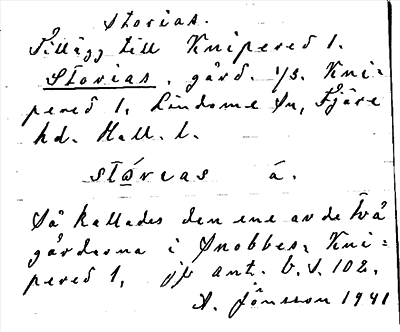 Storias.
Tillägg till Knipered 1.
Storias, gård. 1/3. Kni-
pered 1, Lindome sn, Fjäre
hd. Hall. l.
stórias à.
Så kallades den ene av de två
gårdarna i Snobbes, Kni=
pered 1, jfr ant. b. s. 102.
A. Jönsson 1941